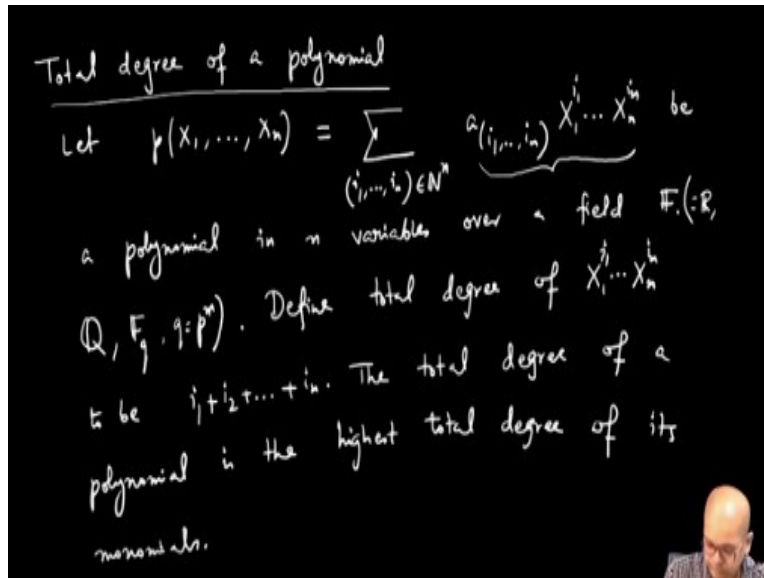 Total degree of a polynomial
Let p(X₁, ..., Xₙ) = ∑ a₍ᵢ₁,...,ᵢₙ₎ X₁^{i₁} ... Xₙ^{iₙ} be
(i₁, ..., iₙ) ∈ ℕⁿ
a polynomial in n variables over a field 𝔽. (=ℝ,
ℚ, 𝔽_q, q=pⁿ). Define total degree of X₁^{i₁} ... Xₙ^{iₙ}
to be i₁+i₂+...+iₙ. The total degree of a
polynomial is the highest total degree of its
monomials.